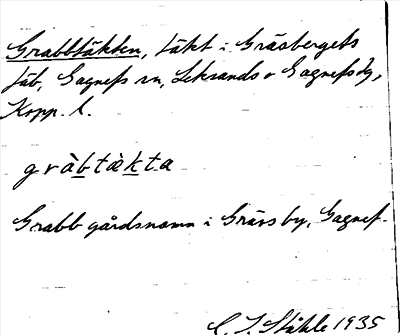 Grabbtäkten, täkt i Gräsbergets
fäb, Gagnefs sn, Leksands o Gagnefs tg,
Kopp. l.
gràbtàkta
Grabb gårdsnamn i Grävs by, Gagnef.
C. I. Ståhle 1935